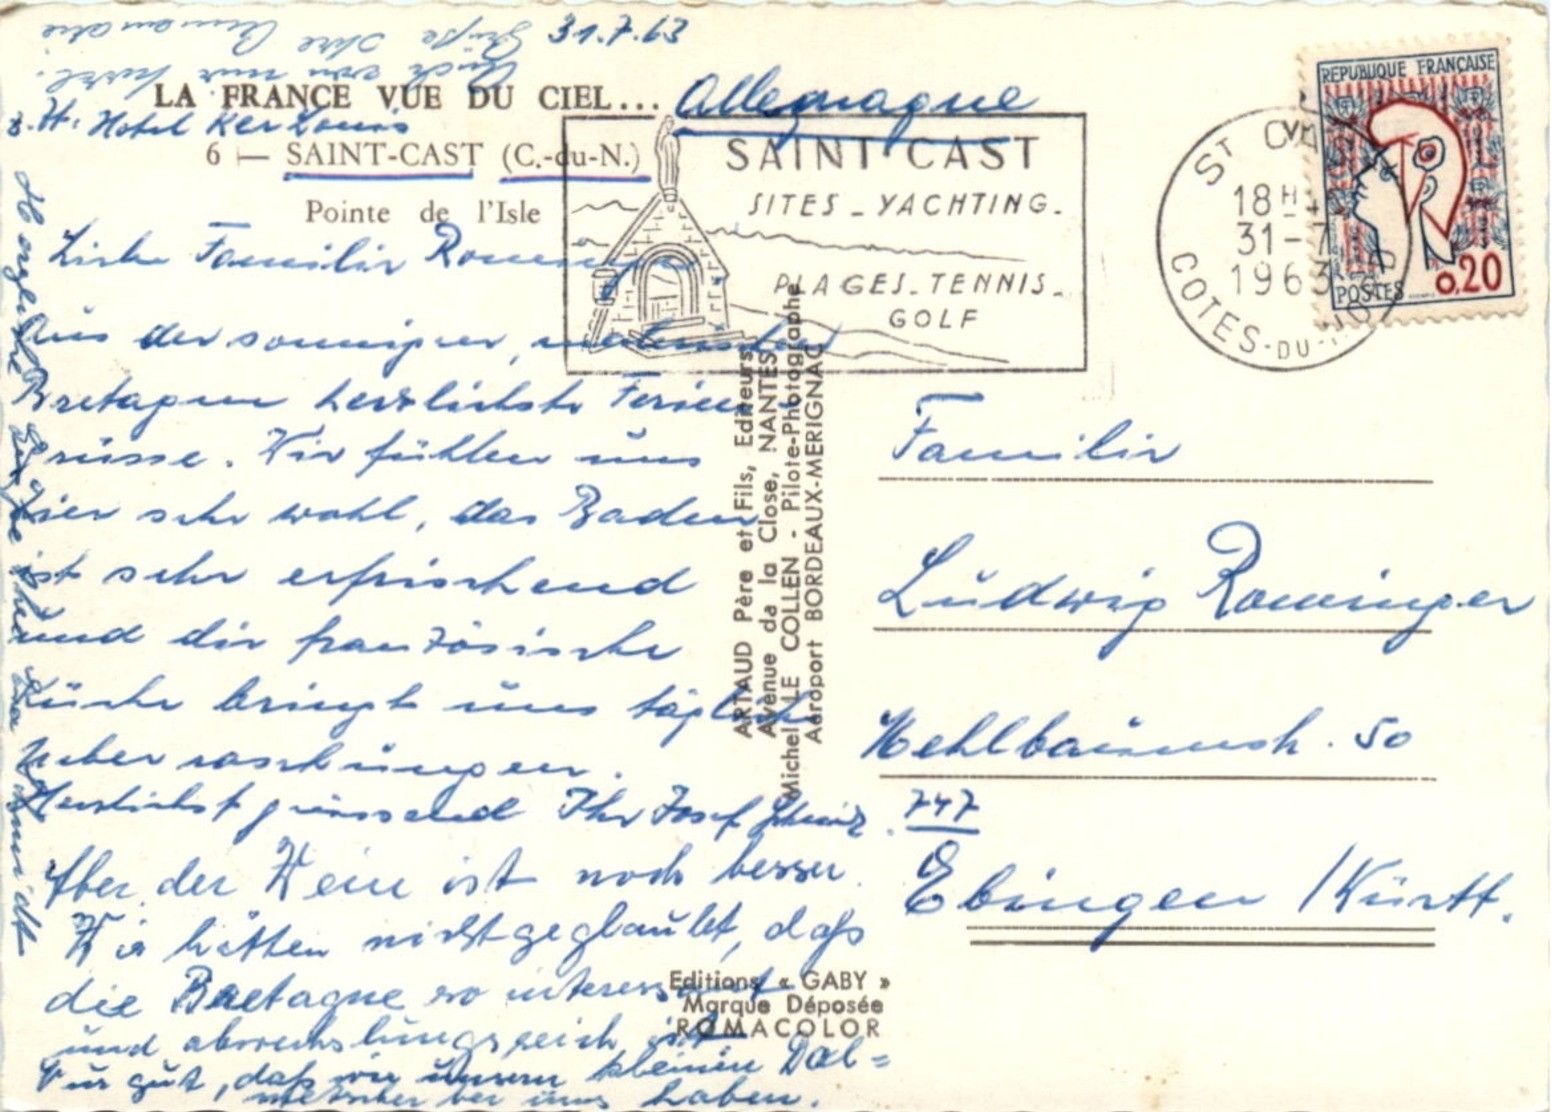 31.7.63
Auch von mir herzl.
Grüße Ihre
LA FRANCE VUE DU CIEL...
Allemagne
z. Zt. Hotel Ker Louis
6 — SAINT-CAST (C.-du-N.)
Pointe de l'Isle
SAINT CAST
SITES _ YACHTING _
PLAGES _ TENNIS _
GOLF
ST CAST
18H
31-7
1963
COTES-DU-NORD
REPUBLIQUE FRANÇAISE
POSTES 0,20
Liebe Familie Rominger
Aus der sonnigen, malerischen
Bretagne herzlichste Ferien
grüsse. Wir fühlen uns
hier sehr wohl, das Baden
ist sehr erfrischend
und die französische
Küche bringt uns täglich
Ueberraschungen.
Herzlichst grüssend Ihr Josef
Aber der Wein ist noch besser.
Wir hätten nicht geglaubt, daß
die Bretagne so interessant
und abwechslungsreich ist.
Nur gut, daß wir unsern kleinen Dol=
metscher bei uns haben.
Herzliche Grüße Ihre
ARTAUD Père et Fils, Editeurs
Avenue de la Close, NANTES
Michel LE COLLEN - Pilote-Photographe
Aéroport BORDEAUX-MERIGNAC
Editions « GABY »
Marque Déposée
ROMACOLOR
Familie
Ludwig Rominger
50
747
Ebingen / Württ.